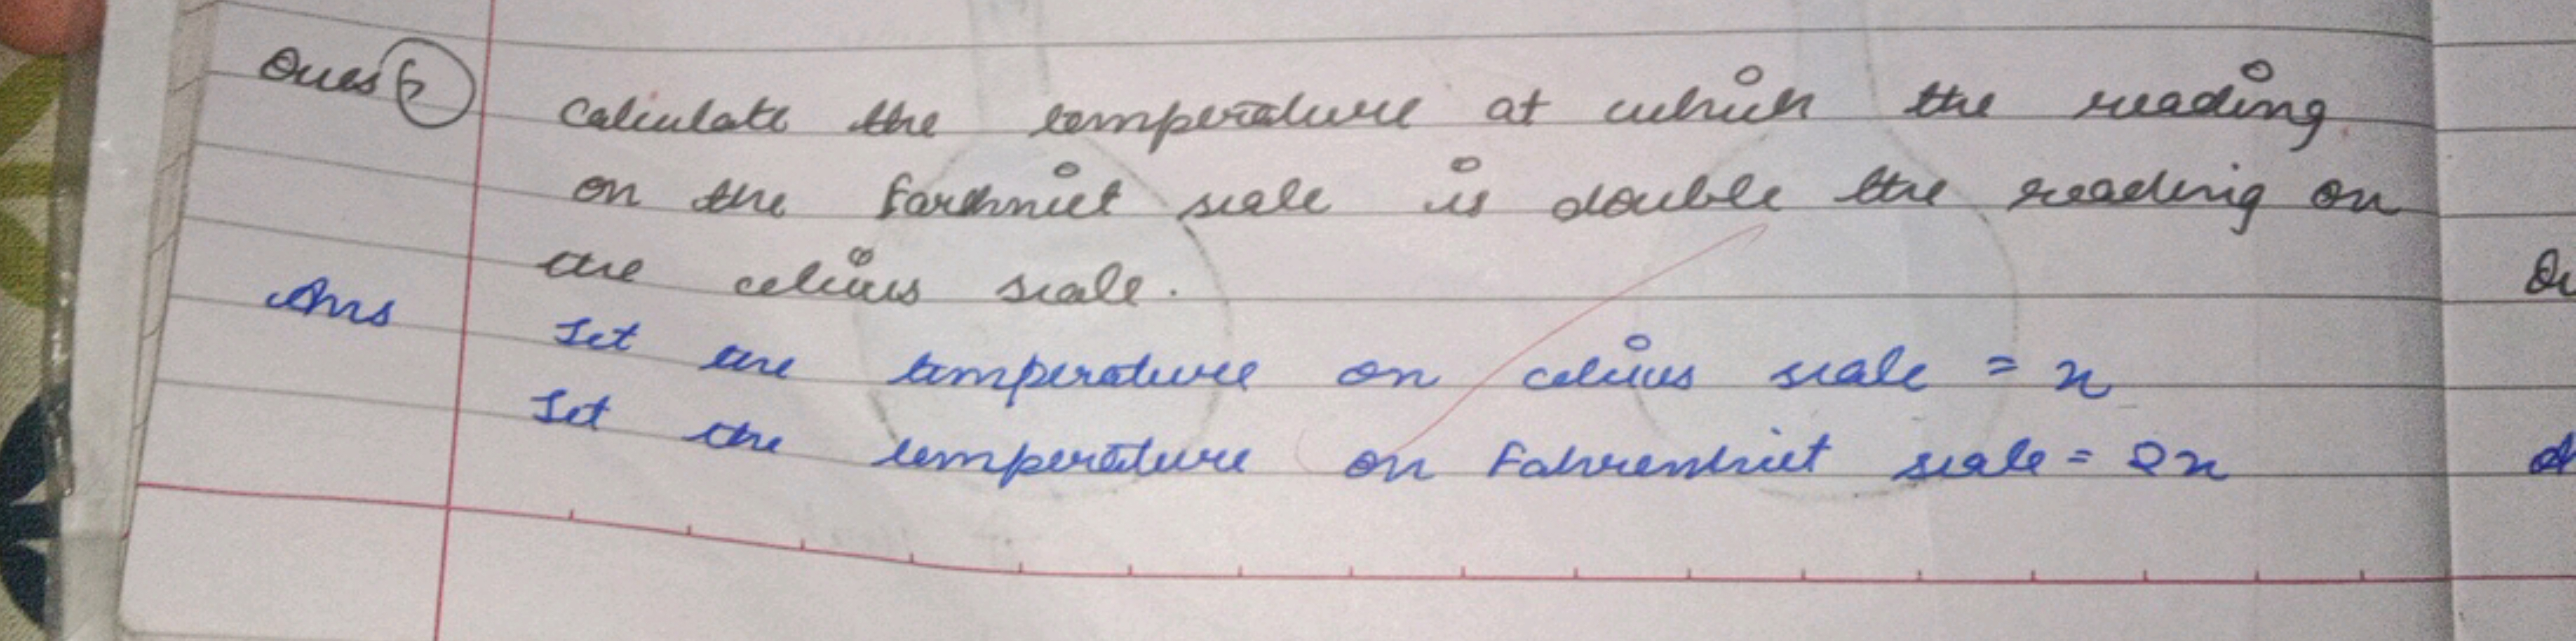 Ques 6 Calculate the temperature at which the reading
on the farhniet scale is double the reading on
the celcius scale.
Ans Let the temperature on celcius scale = x
Let the temperature on Fahrenhiet scale = 2x